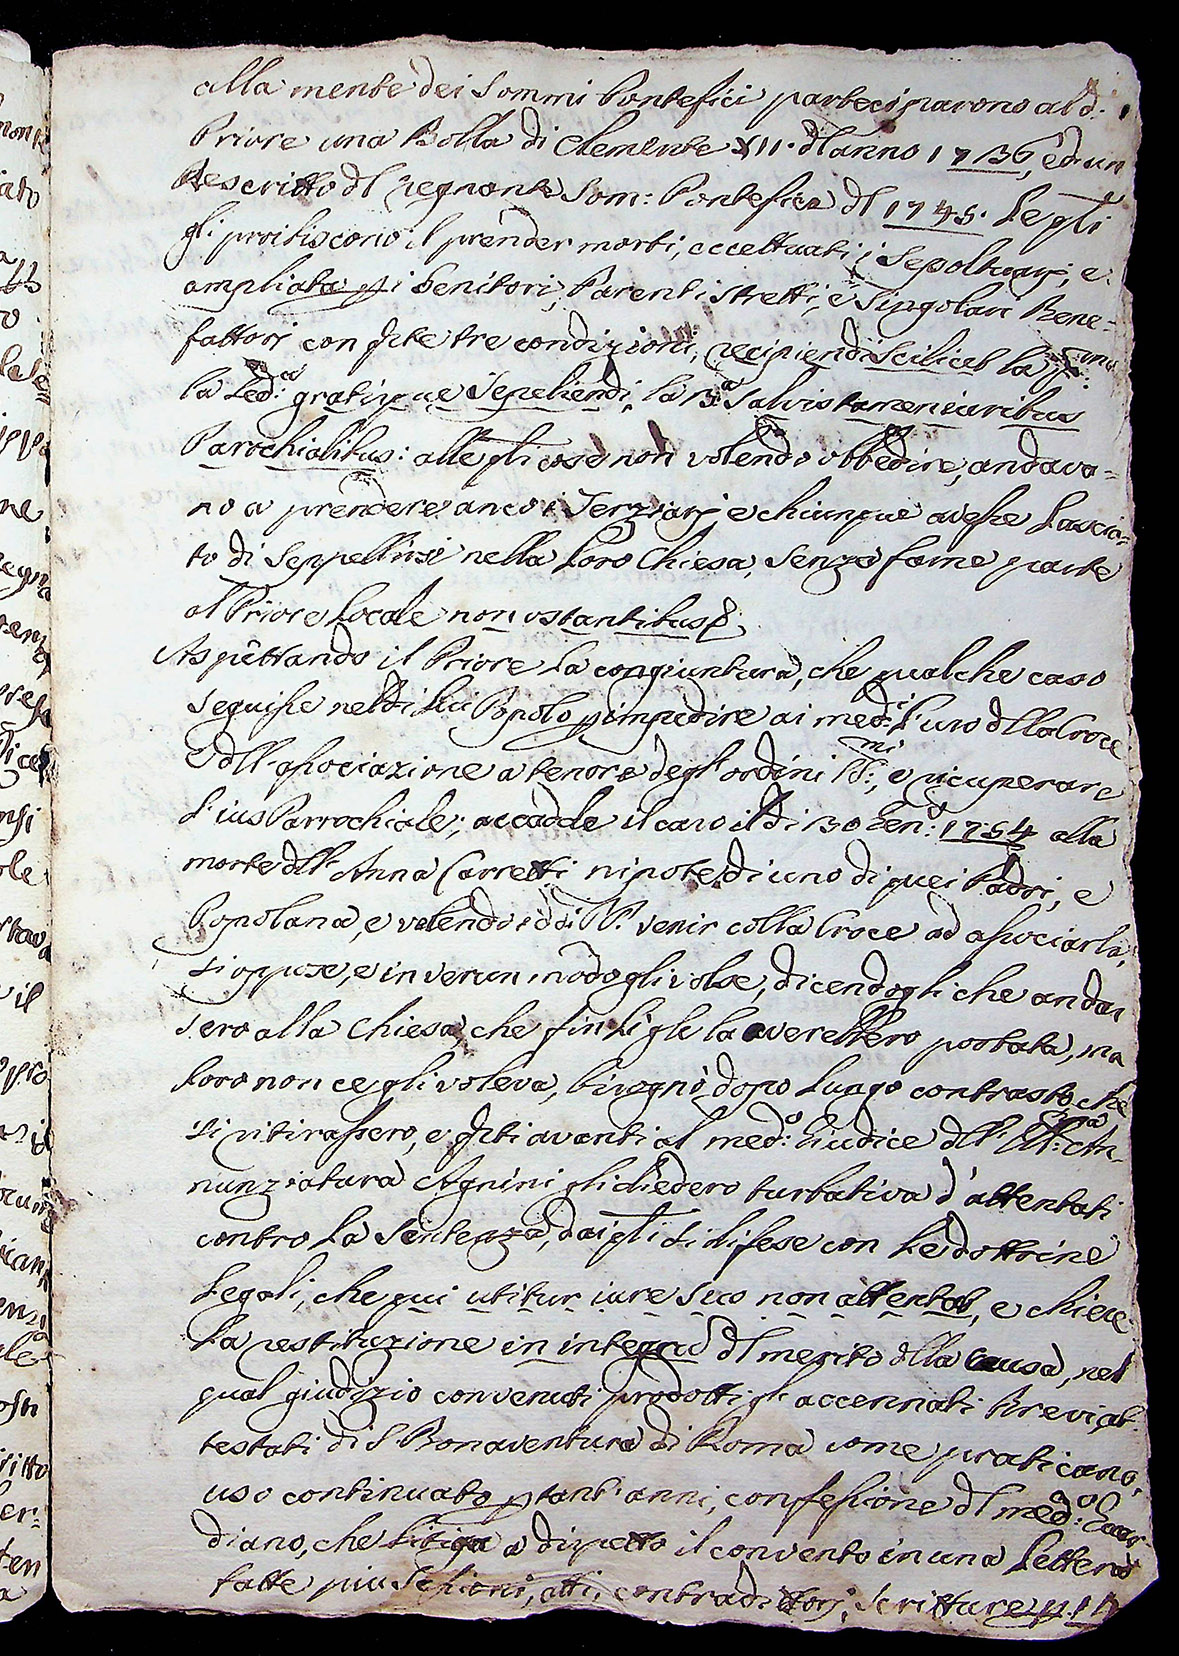 alla mente dei Sommi Pontefici parteciparono al d.
Priore una Bolla di Clemente XII. dl anno 1736, ed un
Rescritto dl regnante Som: Pontefice dl 1745. Le qli
gli proibiscono il prender morti, eccettuati i Sepoltuarj, e
ampliata pi Genitori, Parenti stretti, e Singolari Bene=
fattori con qste tre condizioni, recipiendi scilicet la pma
la sed:a gratisque Sepeliendi, la 3a Salvis tamen iuribus
Parochialibus: alle qli cose non volendo obbedire, andava=
no a prendere anco i Terziarj e chiunque avesse Lascia=
to di Seppellirsi nella Loro Chiesa, senza farne parte
al Priore Locale non ostantibus &.
Aspettando il Priore la congiuntura, che qualche caso
seguisse nel di Lui Popolo p impedire ai med:i l'uso dlla Croce
e dll'associazione a tenore degl'ordini SS:mi, e ricuperare
l'ius Parrochiale; accadde il caso il dì 30 Gen:o 1754 alla
morte dll'Anna Carretti nipote di uno di quei Padri, e
Popolana, e volendo i dd.i PP. venir colla Croce ad associarla,
si oppose, e in verun modo gli volse, dicendogli che andas
sero alla Chiesa, che fin lì gle la averebbero portata, ma
loro non ce gli voleva, bisognò dopo lungo contrasto che
si ritirassero, e qsti avanti al med:o Giudice dll'Ill:ma An-
nunziatura Agnini gli diedero turbativa d'attentati
contro la Sentenza, dai qli si difese con le dottrine
Legali, che qui utitur iure suo non attentat, e chiese
la restituzione in integrũ dl merito dlla Causa, nel
qual giudizio convenuti prodotti gl'accennati Brevi, at-
testati di S Bonaventura di Roma come praticano,
uso continuato p tant'anni, confessione dl med:o Guar
diano, che litiga a dispetto il convento in una Lettera
fatte più Sessioni, atti, contradittorj, scritture p.